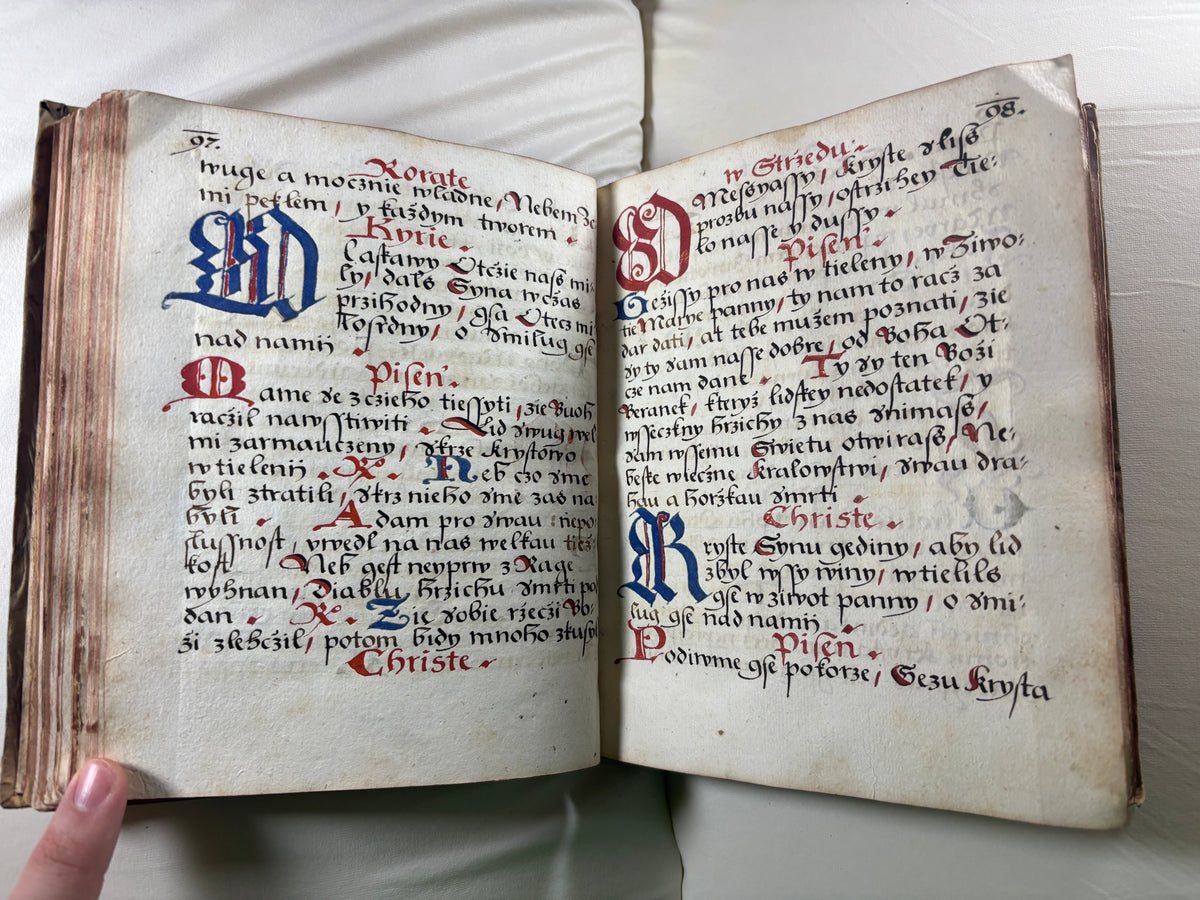 97.
Rorate
wuge a mocznie wladne, Nebem Ze
mi peklem, y každym tworem.
Kyrie.
O Laskawy Otčzie nass mi
ly, dals Syna wčzas
przihodny, gsa Otecz mi
losrdny, o smilug gse
nad namij
Pisen.
Mame se z czieho tiessyti, zie Buoh
raczil nawsstiwiti. Lid swug wel
mi zarmauczeny, skrze Krystowo
wtielenij. R. Neb czo sme
byli ztratili, skrz nieho sme zas na
byli. Adam pro swau nepo
slussnost, vwedl na nas welkau tiež
kost. Neb gest neyprw z Rage
wyhnan, Diablu hrzichu smrti po
dan. R. Zie sobie rzeczi Bo:
ži zlehczil, potom bidy mnoho zkusyl
Christe.
98.
w Strzedu.
O Messyassy, Kryste sliss
prozbu nassy, ostrzihey Tie:
lo nasse y dussy.
Pisen.
Gežissy pro nas w tieleny, w Ziwo:
tie Marye panny, ty nam to racz za
dar dati, at tebe mužem poznati, zie
sy ty sam nasse dobre, od Boha Ot:
cze nam dane. Ty sy ten Boži
Beranek, kteryž lidskey nedostatek, y
wsseczkny hrzichy z nas snimass,
sam wssemu Swietu otwirass, Ne:
beske wieczne Kralowstwi, swau dra:
hau a horžkau smrti.
Christe.
Kryste Synu gediny, aby lid
zbyl wssy winy, wtielils
gse w ziwot panny, o smi:
lug gse nad namij
Pisen.
Podiwme gse pokorze, Gezu Krysta